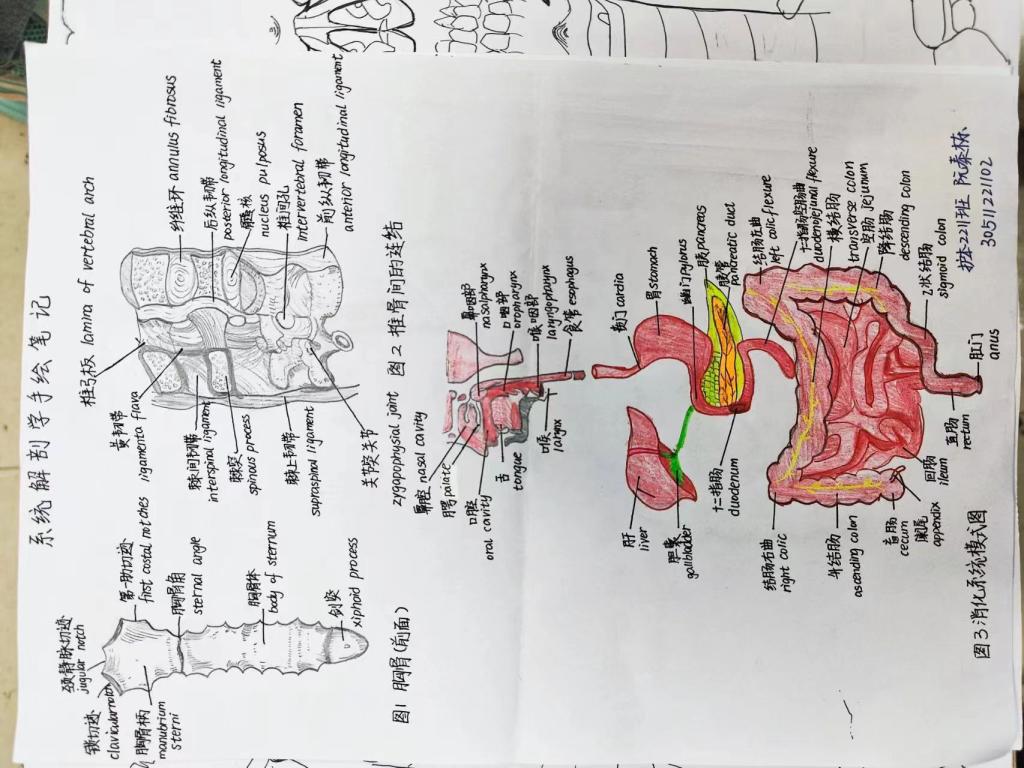 系统解剖学手绘笔记
颈静脉切迹
jugular notch
锁切迹
clavicularnotch
胸骨柄
manubrium
sterni
第一肋切迹
first costal notches
胸骨角
sternal angle
胸骨体
body of sternum
剑突
xiphoid process
图1 胸骨(前面)
椎弓板 lamina of vertebral arch
黄韧带
ligamenta flava
棘间韧带
interspinal ligament
棘突
spinous process
棘上韧带
supraspinal ligament
关节突关节
zygapophysial joint
纤维环 annulus fibrosus
后纵韧带
posterior longitudinal ligament
髓核
nucleus pulposus
椎间孔
intervertebral foramen
前纵韧带
anterior longitudinal ligament
图2 椎骨间的连结
鼻腔 nasal cavity
腭palate
口腔
oral cavity
舌
tongue
喉
larynx
鼻咽部
nasalpharynx
口咽部
oropharynx
喉咽部
laryngopharynx
食管 esophagus
贲门cardia
胃stomach
幽门pylorus
胰pancreas
胰管
pancreatic duct
结肠左曲
left colic flexure
十二指肠空肠曲
duodenojejunal flexure
横结肠
transverse colon
空肠 jejunum
降结肠
descending colon
乙状结肠
sigmoid colon
肛门
anus
肝
liver
胆囊
gallbladder
十二指肠
duodenum
结肠右曲
right colic
升结肠
ascending colon
盲肠
cecum
阑尾
appendix
回肠
ileum
直肠
rectum
图3 消化系统模式图
护本2211班 阮泰栋
30511221102